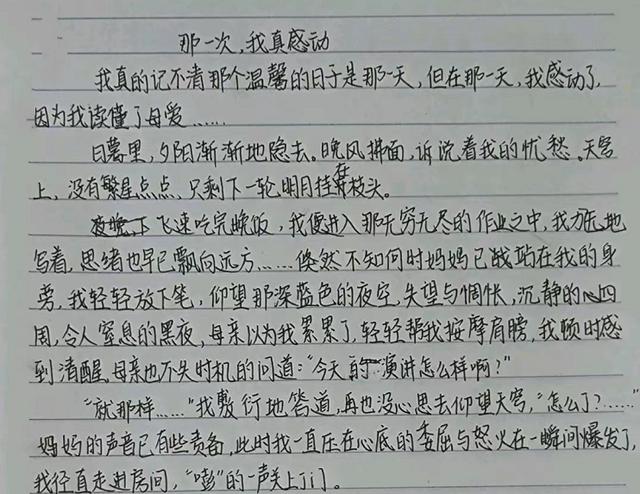 那一次，我真感动
我真的记不清那个温馨的日子是那一天，但在那一天，我感动了，
因为我读懂了母爱……
日暮里，夕阳渐渐地隐去。晚风拂面，诉说着我的忧愁。天穹
上，没有繁星点点、只剩下一轮明月挂在枝头。
飞速吃完晚饭，我便进入那无穷无尽的作业之中，我力无地
写着，思绪也早已飘向远方……倏然不知何时妈妈已站在我的身
旁，我轻轻放下笔，仰望那深蓝色的夜空，失望与惆怅，沉静的心四
周，令人窒息的黑夜，母亲以为我累累了，轻轻帮我按摩肩膀，我顿时感
到清醒。母亲也不失时机的问道：“今天的演讲怎么样啊？”
“就那样……”我敷衍地答道，再也没心思去仰望天穹，“怎么了？……”
妈妈的声音已有些责备，此时我一直压在心底的委屈与怒火在一瞬间爆发了，
我径直走进房间，“嘭”的一声关上门。